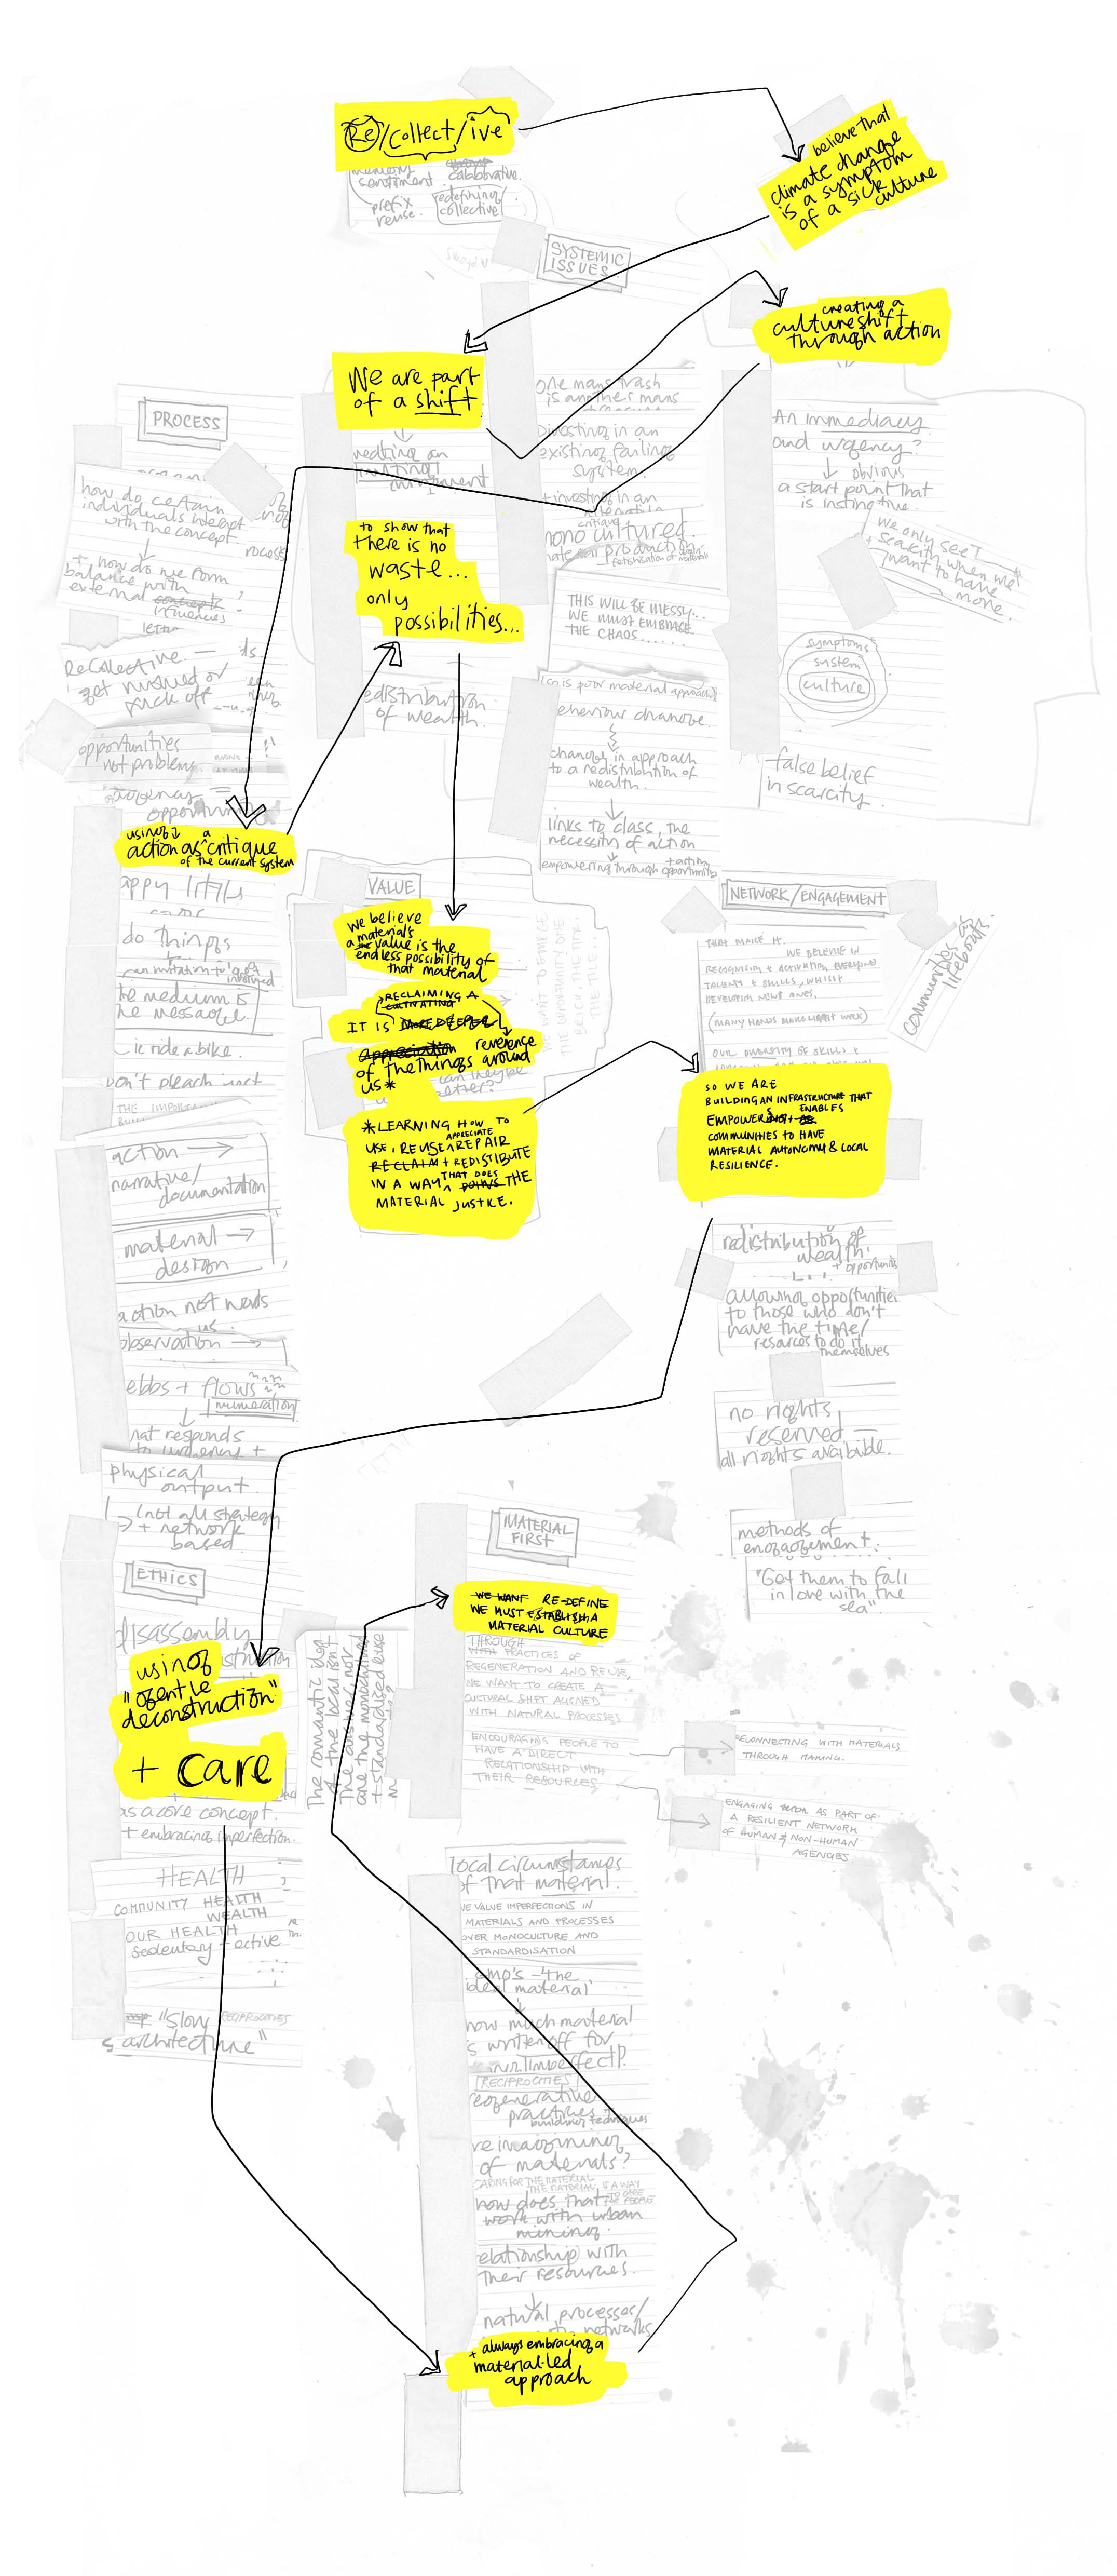 (Re)/collect/ive
sentiment. collaborative.
prefix
reuse.
redefining/
collective
believe that
climate change
is a symptom
of a sick
culture
SYSTEMIC
ISSUES.
creating a
culture shift
through action
We are part
of a shift
one mans trash
is another mans
existing failing
system.
+ investing in an
mono cultured
An immediacy
and urgency?
↓ obvious
a start point that
is instinctive.
We only see
scarcity when we
want to have
more.
PROCESS
how do certain
individuals
with the concept.
+ how do we form
balance with
external concepts
influences
to show that
there is no
waste...
only
possibilities...
THIS WILL BE MESSY...
WE MUST EMBRACE
THE CHAOS......
symptoms
system
culture
ReCollective. —
redistribution
of wealth.
(so is poor material approach)
behaviour change.
change in approach
to a redistribution of
wealth.
↓
links to class, the
necessity of action
↓ + action
empowering through opportunity
false belief
in scarcity.
opportunities
not problems
using ↓ a
action as ^ critique
of the current system
do things
the medium is
the message.
ie ride a bike.
VALUE
We believe
a materials
value is the
endless possibility of
that material
RECLAIMING A
CULTIVATING
IT IS MORE DEEPER
Appreciation reverence
of the things around
us*
*LEARNING HOW TO
APPRECIATE
USE, REUSE & REPAIR
RECLAIM + REDISTRIBUTE
IN A WAY ^ THAT DOES THE
MATERIAL JUSTICE.
NETWORK/ENGAGEMENT
THAT MAKE IT.
WE BELIEVE IN
RECOGNISING + ACTIVATING EVERYONE
TALENTS + SKILLS, WHILST
DEVELOPING NEW ONES.
(MANY HANDS MAKE LIGHT WORK)
OUR DIVERSITY OF SKILLS +
communities as
lifeboats.
SO WE ARE
BUILDING AN INFRASTRUCTURE THAT
EMPOWERS & ENABLES
COMMUNITIES TO HAVE
MATERIAL AUTONOMY & LOCAL
RESILIENCE.
action →
narrative/
documentation
material →
design
action not words
observation →
ebbs + flows
that responds
to urgency +
physical
output.
(not all strategy
+ network
based.
redistribution of
wealth.
+ opportunity
allowing opportunities
to those who don't
have the time/
resources to do it
themselves
no rights
reserved —
all rights available.
methods of
engagement.
"Get them to fall
in love with the
sea".
ETHICS
disassembly
using
"gentle
deconstruction"
+ care
as a core concept.
+ embracing imperfection.
The romantic idea
of the local isn't
HEALTH
COMMUNITY HEALTH
WEALTH
OUR HEALTH
sedentary → active
"slow RECIPROCITIES
architecture"
MATERIAL
FIRST
WE WANT RE-DEFINE
WE MUST ESTABLISH A
MATERIAL CULTURE
THROUGH
PRACTICES OF
REGENERATION AND REUSE,
WE WANT TO CREATE A
CULTURAL SHIFT ALIGNED
WITH NATURAL PROCESSES
ENCOURAGING PEOPLE TO
HAVE A DIRECT
RELATIONSHIP WITH
THEIR RESOURCES
RECONNECTING WITH MATERIALS
THROUGH MAKING.
ENGAGING AS PART OF
A RESILIENT NETWORK
OF HUMAN & NON-HUMAN
AGENCIES
local circumstances
of that material.
WE VALUE IMPERFECTIONS IN
MATERIALS AND PROCESSES
OVER MONOCULTURE AND
STANDARDISATION
GMO's - the
ideal material
how much material
is written off for
being imperfect?
[RECIPROCITIES]
regenerative
practices +
building techniques
reimagining
of materials?
CARING FOR THE MATERIAL
how does that
work with urban
mining.
relationship with
their resources.
↓
natural processes/
networks
+ always embracing a
material-led
approach